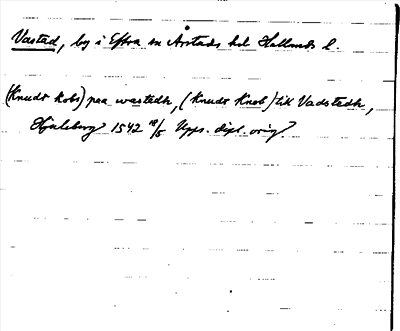 Vastad, by i Eftra sn Årstads hd Hallands l.
(Knudt Kobs) paa wastedh, (Knudt Knob) till Vadstedh,
Hjuleberg 1542 18/5 Upps. dipl. orig.